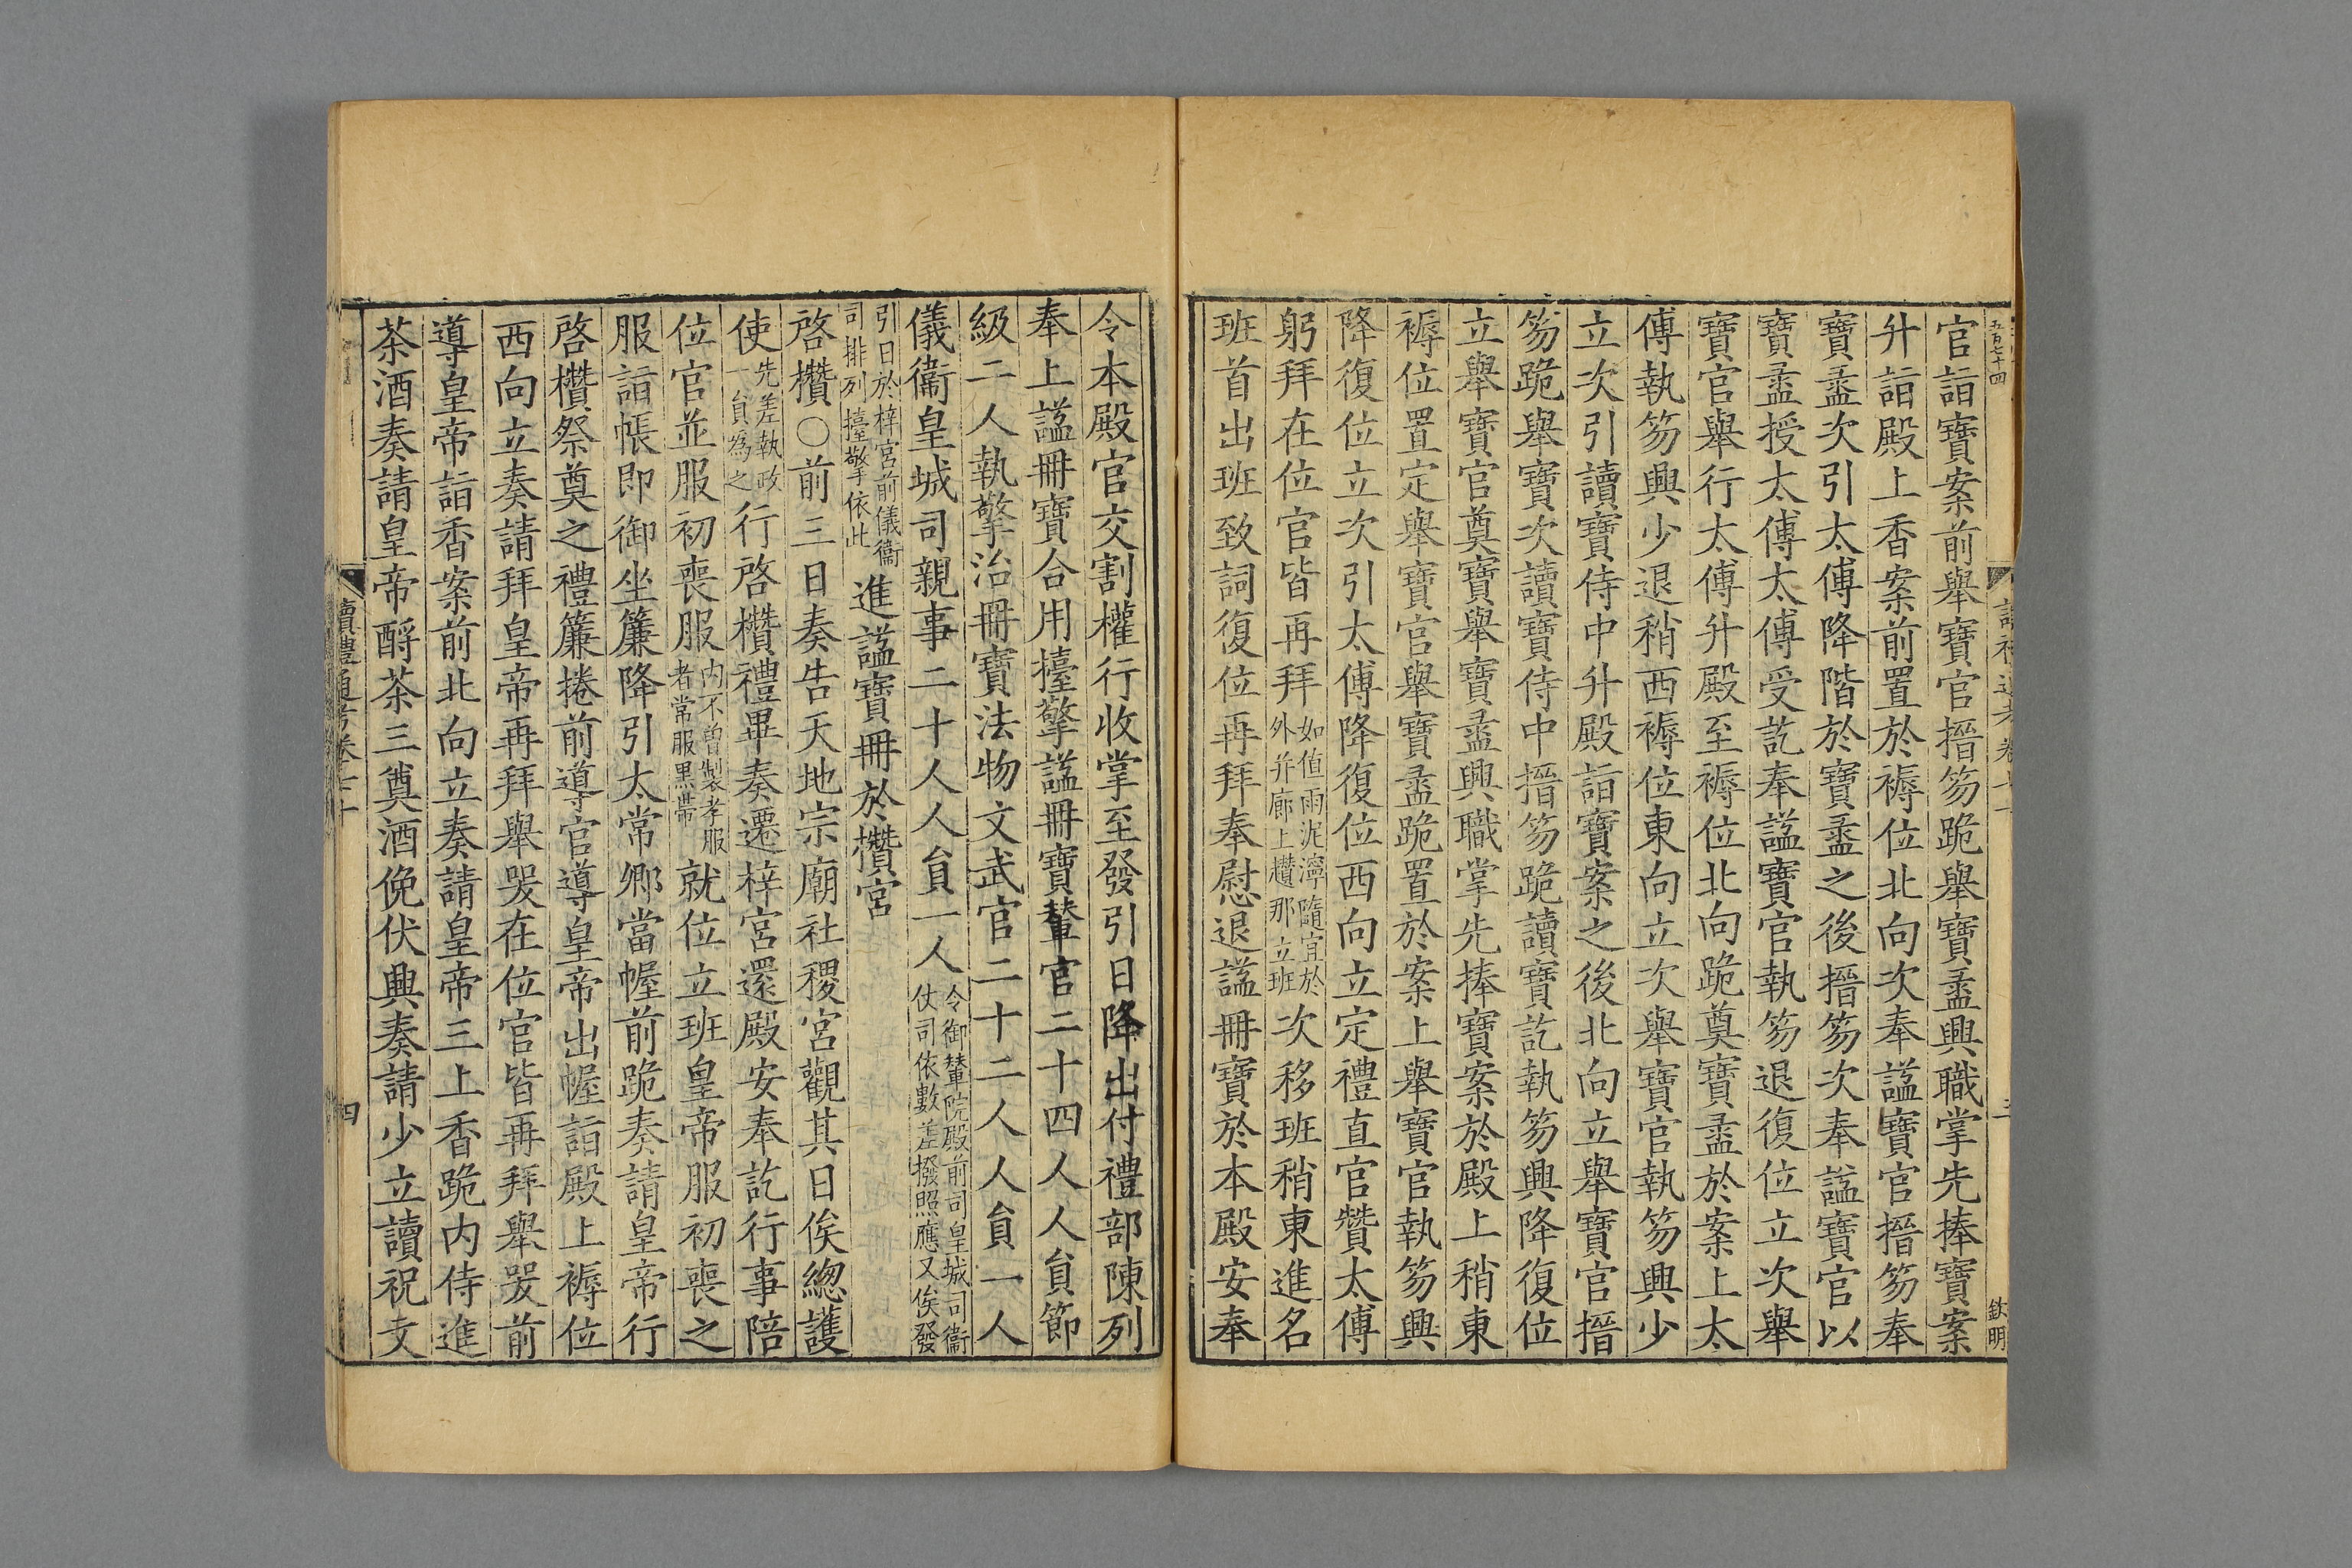 五百七十四
欽明
官詣寶案前舉寶官搢笏跪舉寶盝興職掌先捧寶案
升詣殿上香案前置於褥位北向次奉謚寶官搢笏奉
寶盝次引太傅降階於寶盝之後搢笏次奉謚寶官以
寶盝授太傅太傅受訖奉謚寶官執笏退復位立次舉
寶官舉行太傅升殿至褥位北向跪奠寶盝於案上太
傅執笏興少退稍西褥位東向立次舉寶官執笏興少
立次引讀寶侍中升殿詣寶案之後北向立舉寶官搢
笏跪舉寶次讀寶侍中搢笏跪讀寶訖執笏興降復位
立舉寶官奠寶舉寶盝興職掌先捧寶案於殿上稍東
褥位置定舉寶官舉寶盝跪置於案上舉寶官執笏興
降復位立次引太傅降復位西向立定禮直官贊太傅
躬拜在位官皆再拜如值雨泥濘隨宜於外并廊上趲那立班次移班稍東進名
班首出班致詞復位再拜奉慰退謚冊寶於本殿安奉
令本殿官交割權行收掌至發引日降出付禮部陳列
奉上謚冊寶合用擡擎謚冊寶輦官二十四人人員節
級二人執擎治冊寶法物文武官二十二人人員一人
儀衞皇城司親事二十人人員一人令御輦院殿前司皇城司衞仗司依數差撥照應又俟發
引日於梓宮前儀衞司排列擡擎依此進謚寶冊於欑宮
啓欑○前三日奏告天地宗廟社稷宮觀其日俟緫護
使先差執政一員為之行啓欑禮畢奏遷梓宮還殿安奉訖行事陪
位官並服初喪服内不曾製孝服者常服黑帶就位立班皇帝服初喪之
服詣帳即御坐簾降引太常卿當幄前跪奏請皇帝行
啓欑祭奠之禮簾捲前導官導皇帝出幄詣殿上褥位
西向立奏請拜皇帝再拜舉哭在位官皆再拜舉哭前
導皇帝詣香案前北向立奏請皇帝三上香跪内侍進
茶酒奏請皇帝酹茶三奠酒俛伏興奏請少立讀祝文
讀禮通考卷七十
四